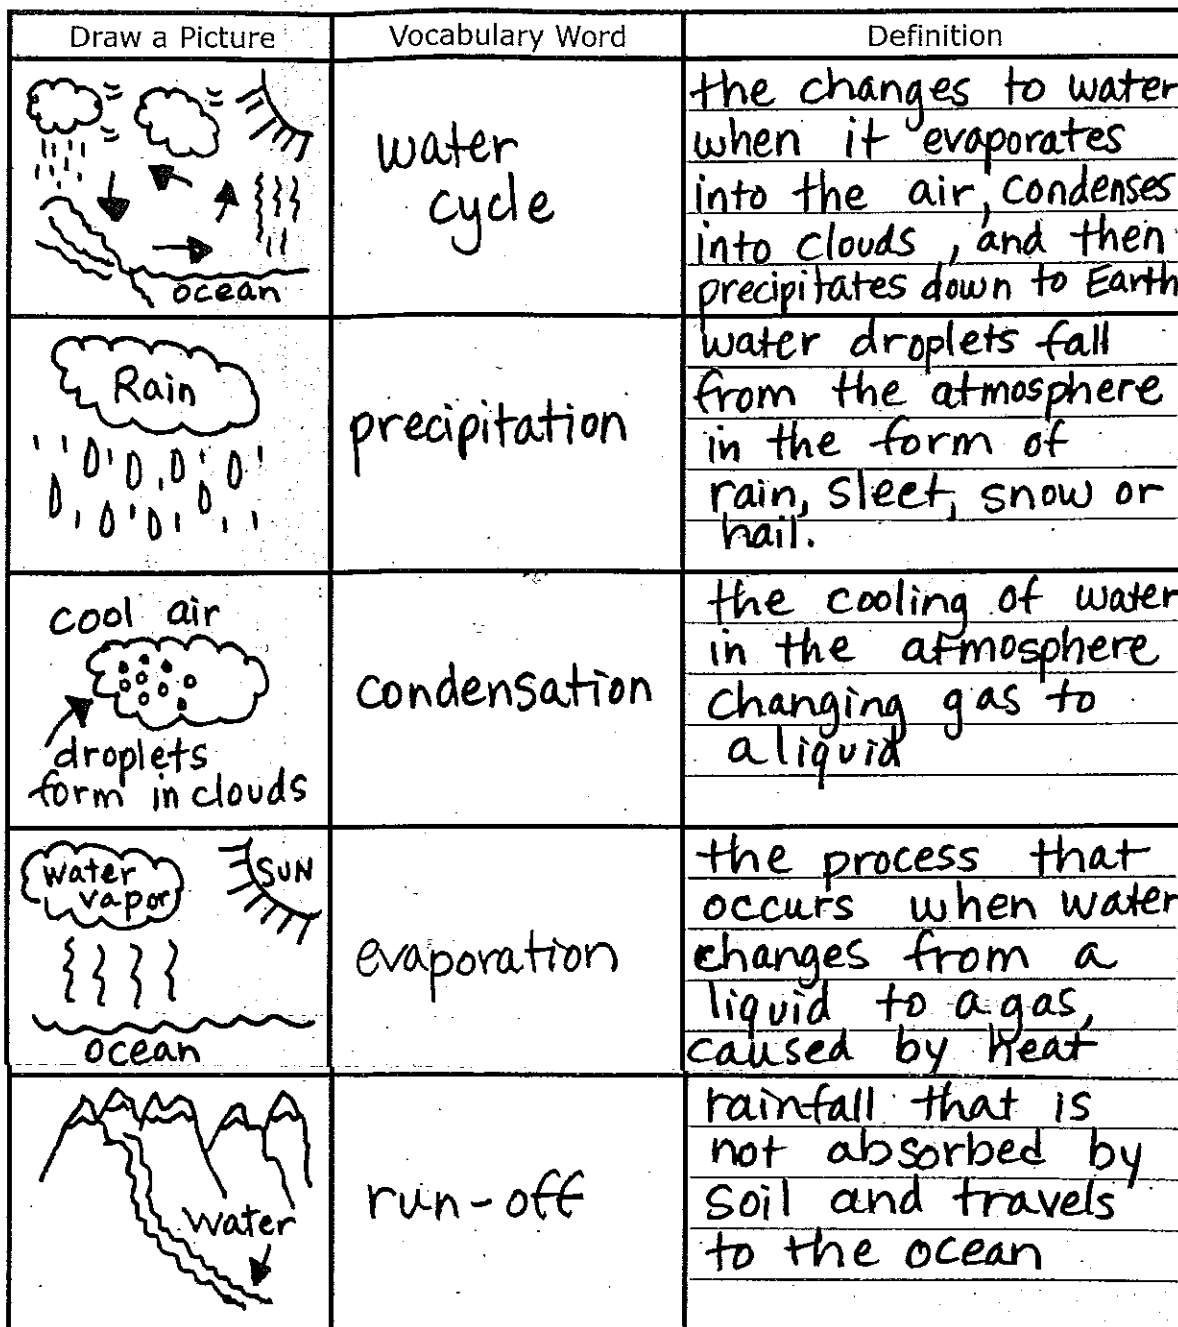 Draw a Picture
Vocabulary Word
Definition
ocean
water
cycle
the changes to water
when it evaporates
into the air, condenses
into clouds, and then
precipitates down to Earth
Rain
precipitation
water droplets fall
from the atmosphere
in the form of
rain, sleet, snow or
hail.
cool air
droplets
form in clouds
condensation
the cooling of water
in the atmosphere
changing gas to
a liquid
water
vapor
SUN
ocean
evaporation
the process that
occurs when water
changes from a
liquid to a gas,
caused by heat
water
run-off
rainfall that is
not absorbed by
soil and travels
to the ocean